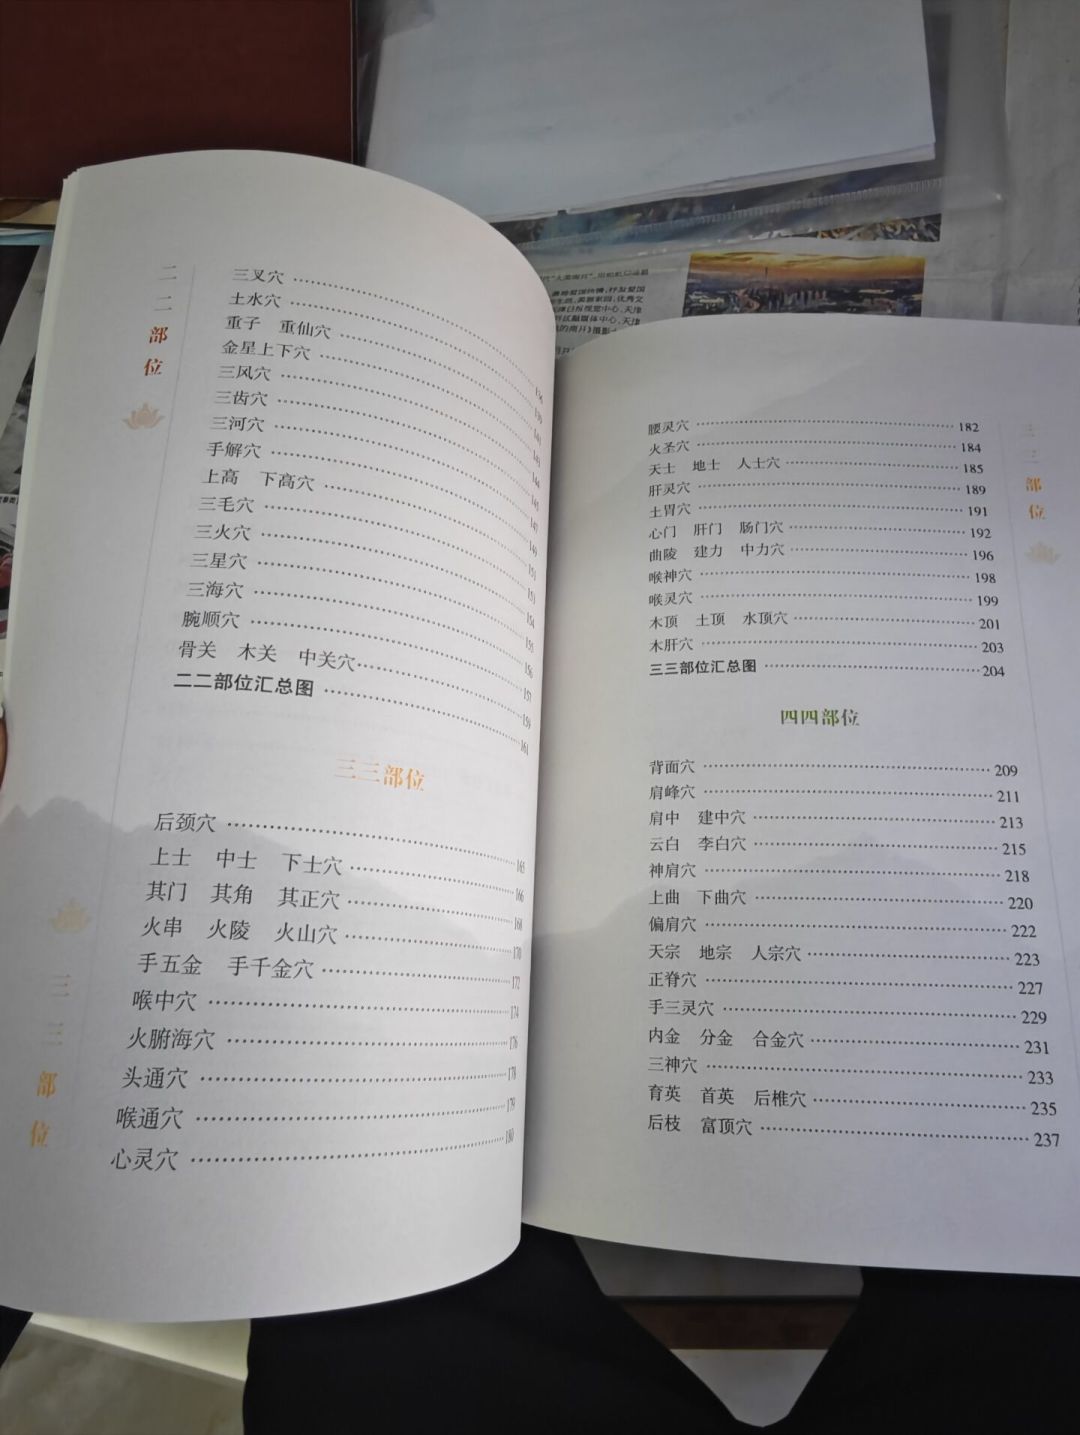 二二部位
三叉穴
土水穴 139
重子 重仙穴 141
金星上下穴 143
三风穴 144
三齿穴 145
三河穴 147
手解穴 149
上高 下高穴 151
三毛穴 153
三火穴 154
三星穴 155
三海穴 156
腕顺穴 157
骨关 木关 中关穴 159
二二部位汇总图 161
三三部位
后颈穴 165
上士 中士 下士穴 166
其门 其角 其正穴 168
火串 火陵 火山穴 170
手五金 手千金穴 172
喉中穴 174
火腑海穴 176
头通穴 178
喉通穴 179
心灵穴 180
三三部位
腰灵穴 182
火圣穴 184
天士 地士 人士穴 185
肝灵穴 189
土胃穴 191
心门 肝门 肠门穴 192
曲陵 建力 中力穴 196
喉神穴 198
喉灵穴 199
木顶 土顶 水顶穴 201
木肝穴 203
三三部位汇总图 204
四四部位
背面穴 209
肩峰穴 211
肩中 建中穴 213
云白 李白穴 215
神肩穴 218
上曲 下曲穴 220
偏肩穴 222
天宗 地宗 人宗穴 223
正脊穴 227
手三灵穴 229
内金 分金 合金穴 231
三神穴 233
育英 首英 后椎穴 235
后枝 富顶穴 237
三三部位